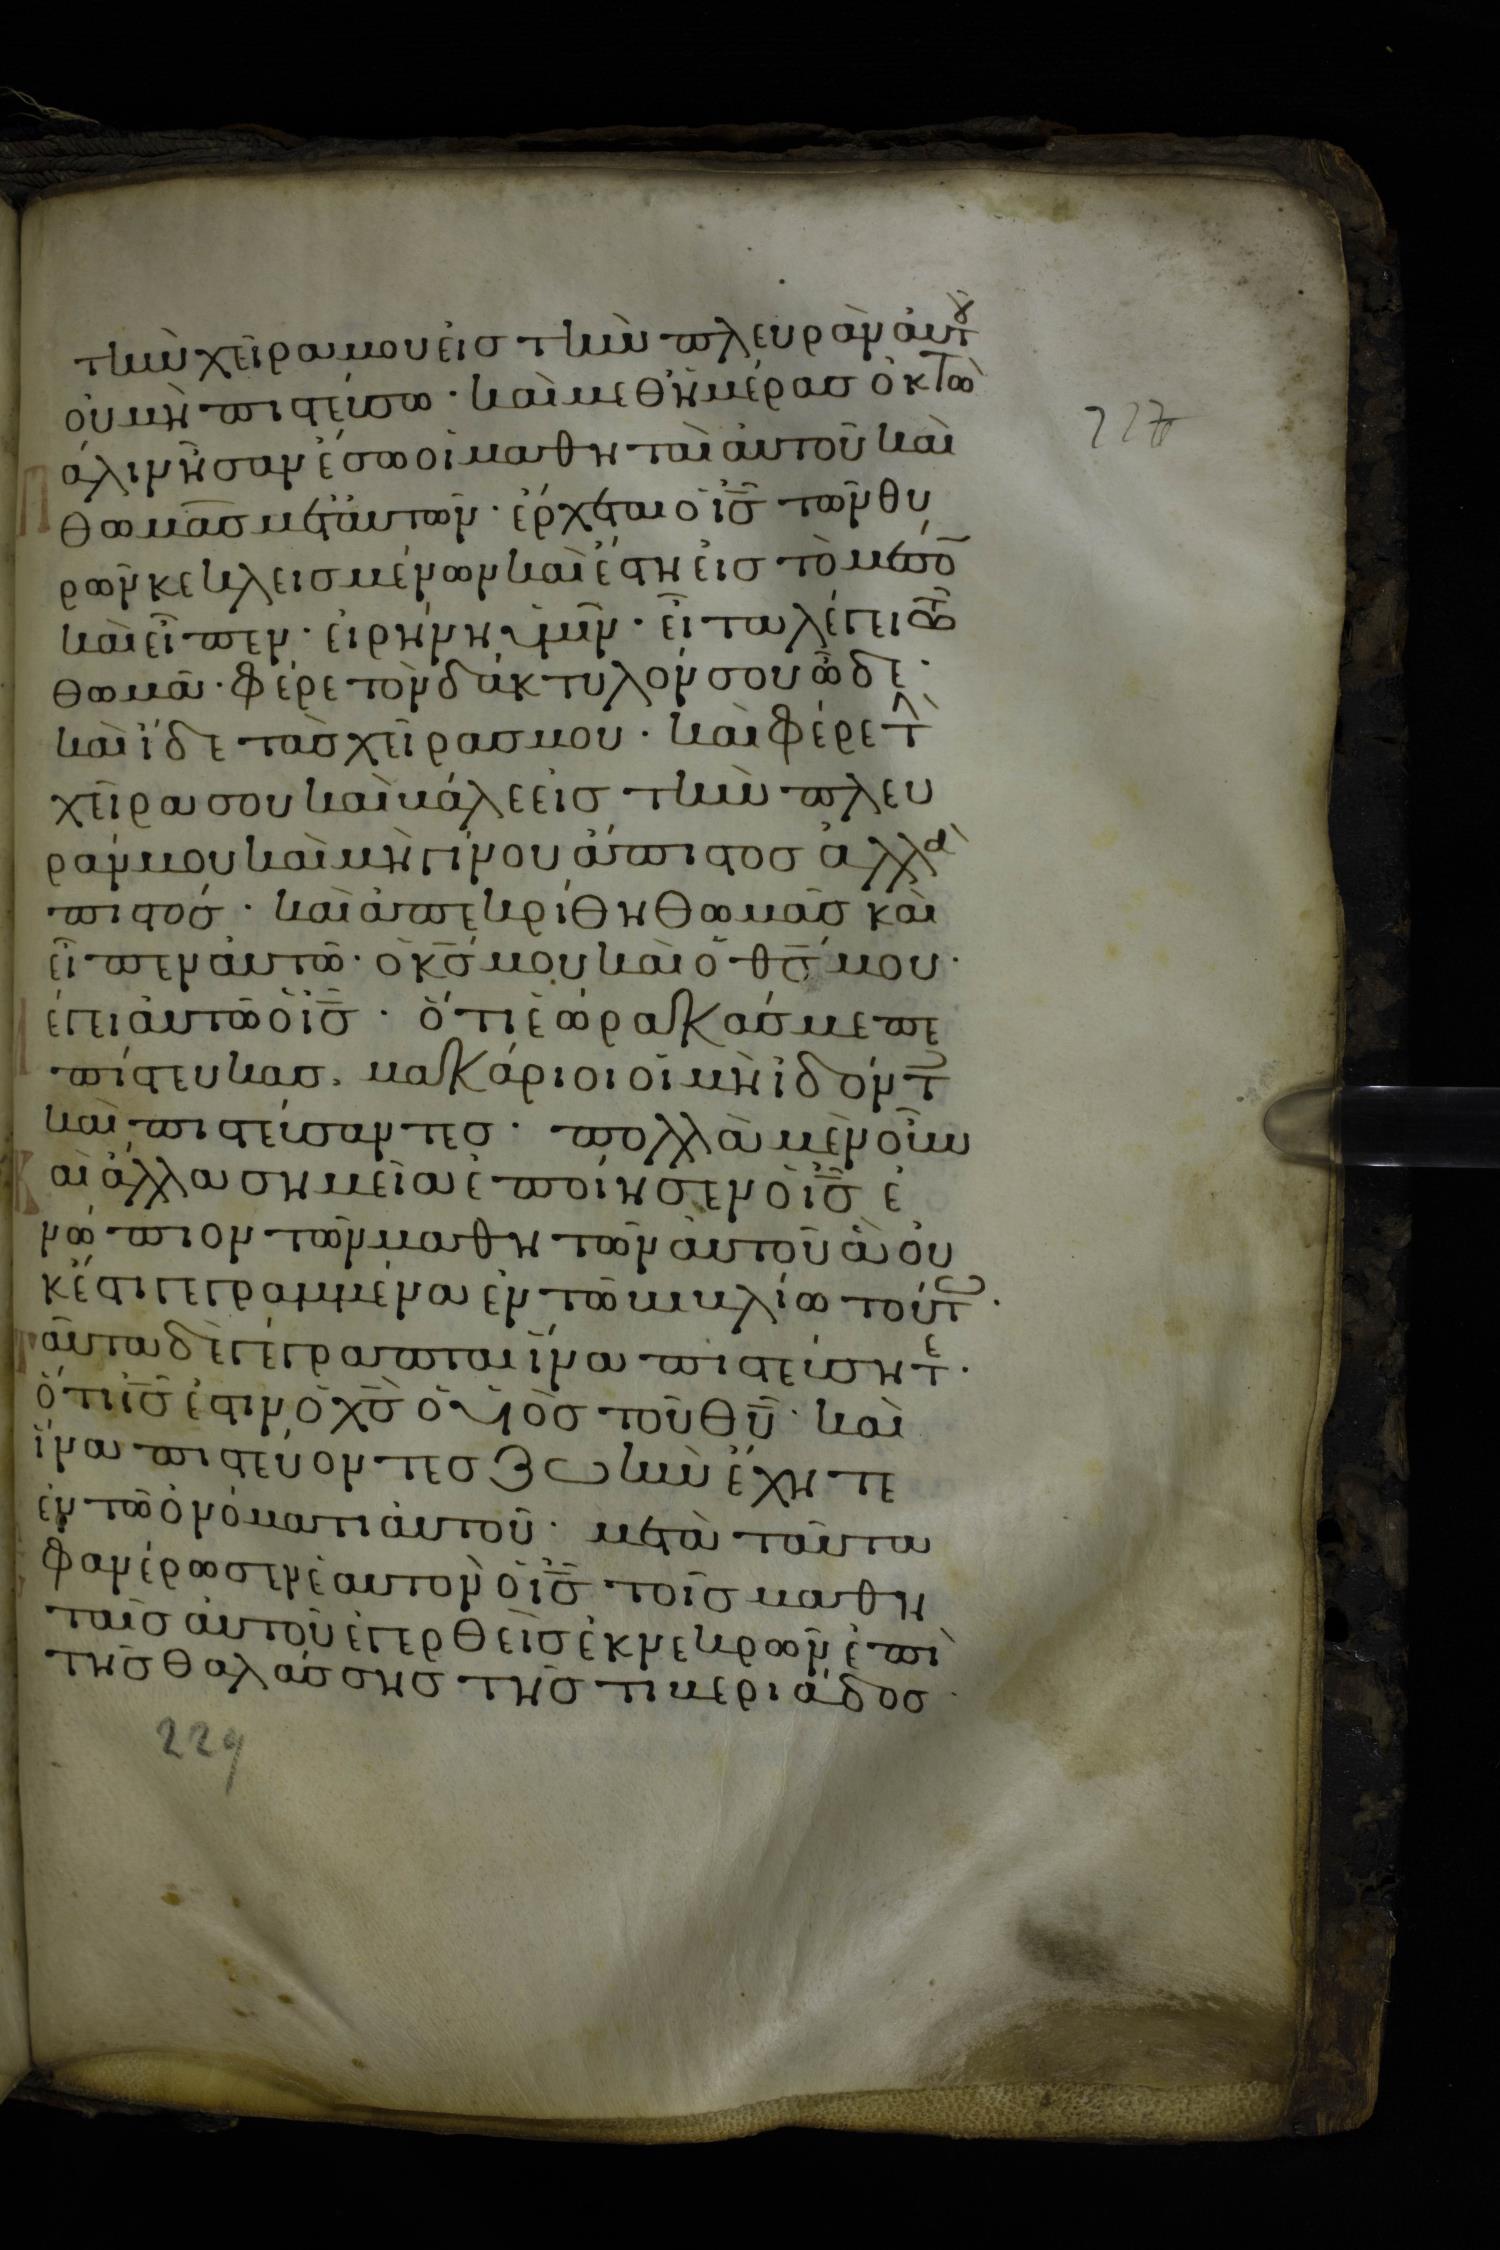 τὴν χεῖρα μου εἰς τὴν πλευρὰν αὐτοῦ
οὐ μὴ πιστεύσω · καὶ μεθ ἡμέρας ὀκτὼ
227
πάλιν ἦσαν ἔσω οἱ μαθηταὶ αὐτοῦ καὶ
θωμᾶς μετ αὐτῶν · ἔρχεται ὁ ις τῶν θυ
ρῶν κεκλεισμένων καὶ ἔστη εἰς τὸ μέσον
καὶ εἶπεν · εἰρήνη ὑμῖν · εἶτα λέγει τῷ
θωμᾶ · φέρε τὸν δάκτυλόν σου ὧδε ·
καὶ ἴδε τὰς χεῖρας μου · καὶ φέρε τὴν
χεῖρα σου καὶ βάλε εἰς τὴν πλευ
ράν μου καὶ μὴ γίνου ἄπιστος ἀλλὰ
πιστός · καὶ ἀπεκρίθη θωμᾶς καὶ
εἶπεν αὐτῶ · ὁ κς μου καὶ ὁ θς μου ·
λέγει αὐτῶ ὁ ις · ὅτι ἑώρακάς με πε
πίστευκας · μακάριοι οἱ μὴ ἰδόντες
καὶ πιστεύσαντες · πολλὰ μὲν οὖν
καὶ ἄλλα σημεῖα ἐποίησεν ὁ ις ἐ
νώπιον τῶν μαθητῶν αὐτοῦ ἃ οὐ
κ ἔστι γεγραμμένα ἐν τῶ βιβλίω τούτω ·
ταῦτα δὲ γέγραπται ἵνα πιστεύσητε ·
ὅτι ις ἐστιν ὁ χς ὁ υἱὸς τοῦ θυ · καὶ
ἵνα πιστεύοντες ζωὴν ἔχητε
ἐν τῶ ὀνόματι αὐτοῦ · μετὰ ταῦτα
ἐφανέρωσεν ἑαυτὸν ὁ ις τοῖς μαθη
ταῖς αὐτοῦ ἐγερθεὶς ἐκ νεκρῶν ἐπὶ
τῆς θαλάσσης τῆς τιβεριάδος ·
229